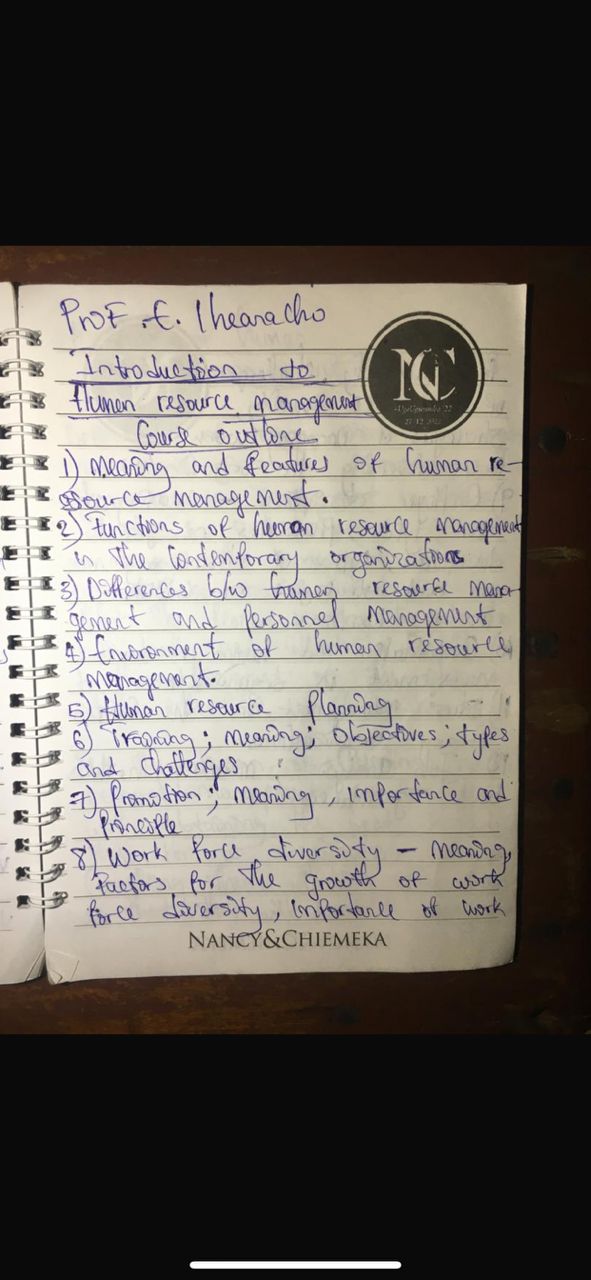 Prof. E. Ihearacho
Introduction to
NC
Human resource management
27·12·2022
Course outline
1) Meaning and features of human re-
source management.
2) Functions of human resource management
in the contemporary organizations
3) Differences b/w human resource mana-
gement and personnel management
4) Environment of human resource
management.
5) Human resource planning
6) Training; meaning; objectives; types
and challenges
7) Promotion; meaning, importance and
principle
8) Work force diversity – meaning,
factors for the growth of work
force diversity, importance of work
NANCY&CHIEMEKA